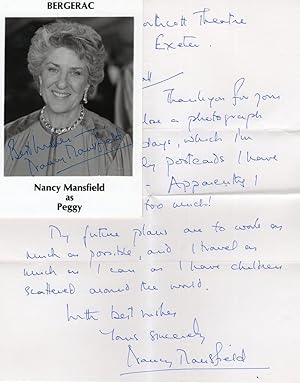 BERGERAC
Best wishes
Nancy Mansfield
Nancy Mansfield
as
Peggy
Theatre
Exeter.
Thank you for your
a photograph
days, which I'm
postcards I have
- Apparently I
too much!
My future plans are to work as
much as possible, and I travel as
much as I can as I have children
scattered around the world.
With best wishes
Yours sincerely
Nancy Mansfield